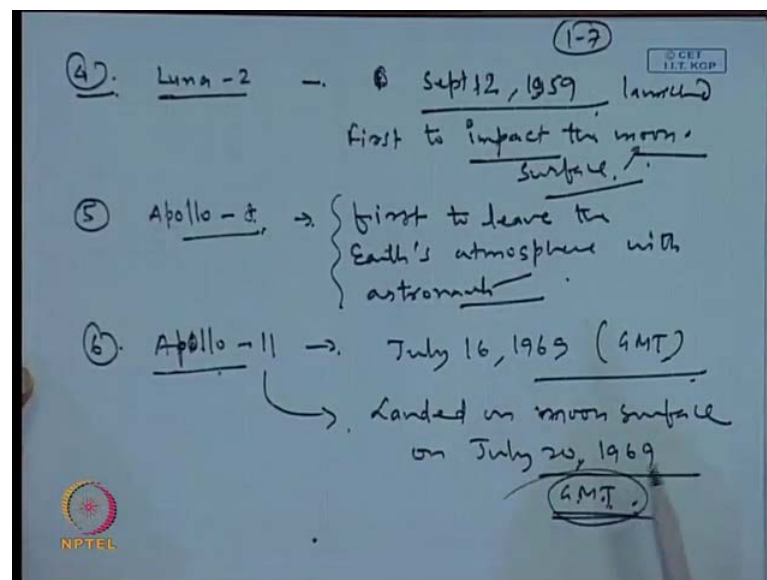 1-7
© CET
I.I.T. KGP
4). Luna-2 - Sept 12, 1959 launched
first to impact the moon.
surface.
5 Apollo - → first to leave the
Earth's atmosphere with
astronaut
6. Apollo-11 → July 16, 1969 (GMT)
→ Landed on moon surface
on July 20, 1969
G.M.T.
NPTEL